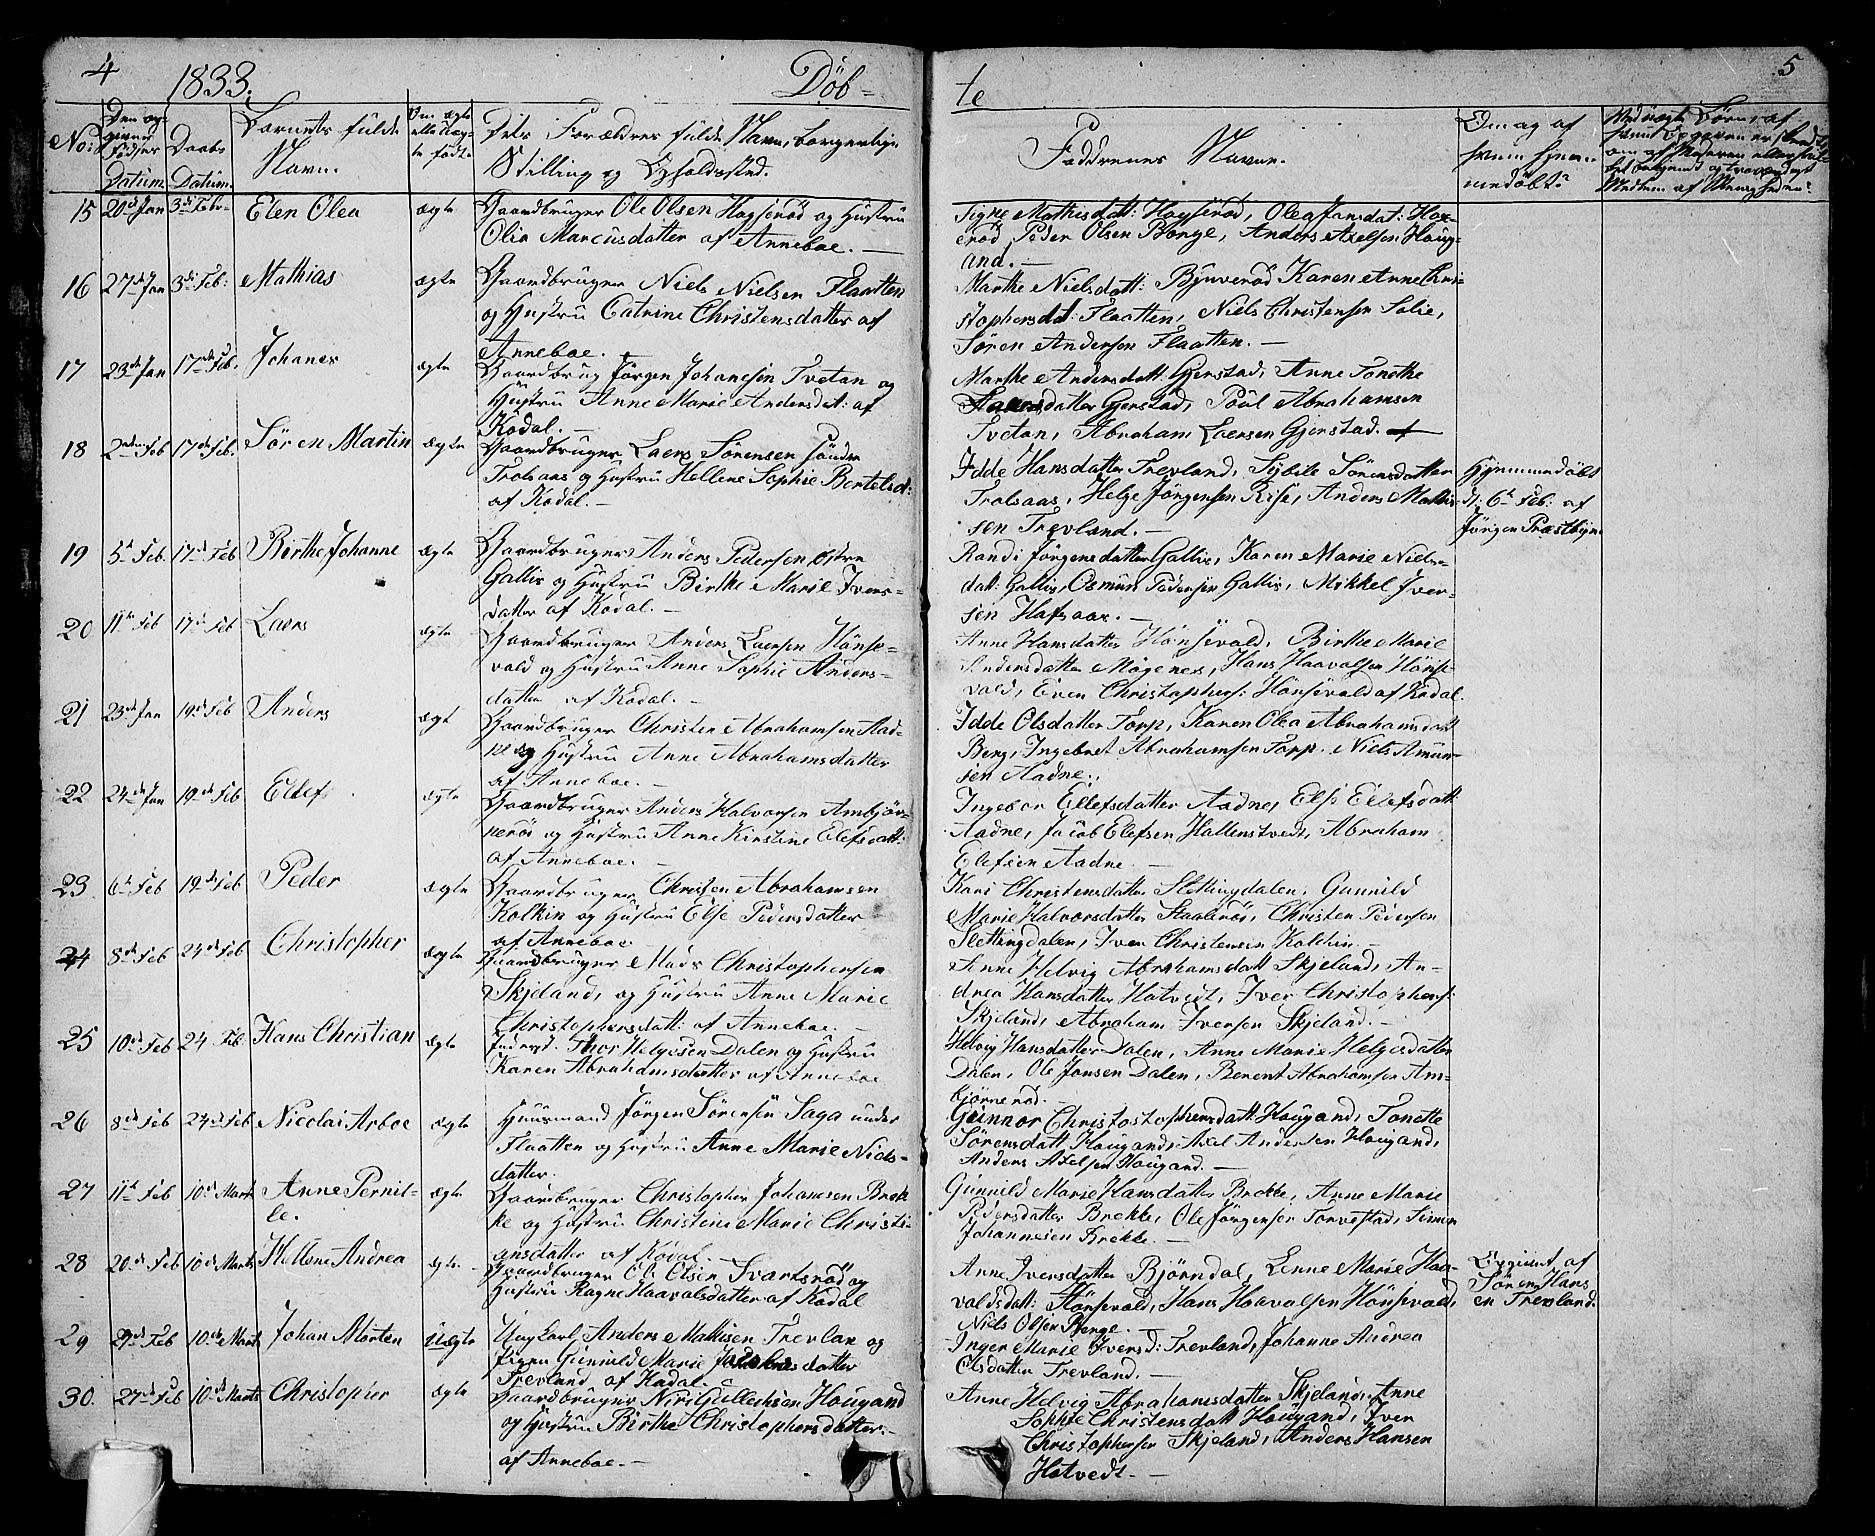 4
1833.
Döb-
te
5
No:
Den opgivne Födsels Datum.
Daabs Datum.
Barnets fulde Navn.
Om ægte eller Uægte födt.
Dets Forældres fulde Navn, borgerlige Stilling og Opholdssted.
Faddrenes Navne.
Om og af hvem hjemmedöbt?
15 20de Jan 3die Febr. Elen Olea ægte Gaardbruger Ole Olsen Hogserød og Hustru
Olia Marcusdatter af Anneboe. —
Signe Mathisdatt: Hogserød, Olea Jansdat: Hox-
erød, Peder Olsen Bonge, Anders Axelsen Houg-
and. —
16 27de Jan 3die Feb: Mathias ægte Gaardbruger Niels Nielsen Flaatten
og Hustru Catrine Christensdatter af
Anneboe. —
Marthe Nielsdatt: Karen Anne Chri-
stophersdat: Flaatten, Niels Christensen Solie,
Sören Andersen Flaatten. —
17 23de Jan 17de Feb. Johanes ægte Gaardbrug Jörgen Johanesen Tvetan og
Hustru Anne Marie Andersdat: af
Kodal. —
Marthe Andersdatt: Gjerstad, Anne Tonethe
datter Gjerstad, Poul Abrahamsen
Tvetan, Abraham Laersen Gjerstad.
18 2den Feb 17de Feb. Sören Martin ægte Gaardbruger Laers Sörensen Söndre
Trolsaas og Hustru Hellene Sophie Bertelsd:
af Kodal. —
Idde Hansdatter Trevland, Sybile Sörensdatter
Trolsaas, Helge Jörgensen Rise, Anders Mathis-
sen Trevland. —
Hjemmedöbt
d: 6te Feb: af
Jörgen Præstbyn
19 5te Feb. 17de Feb Birthe Johanne ægte Gaardbruger Anders Pedersen Østre
Gallis og Hustru Birthe Marie Ivers-
datter af Kodal. —
Randi Jörgensdatter Gallis, Karen Marie Niels-
datt: Gallis, Osmun Pedersen Gallis, Mikkel Iver-
sen Hafsaas. —
20 11te Feb 17de Feb Laers ægte Gaardbruger Anders Laersen Hönse-
vald og Hustru Anne Sophie Anders-
datter af Kodal. —
Anne Hansdatter Hönsevald, Birthe Marie
Andersdatter Mögenes, Hans Haavalsen Hönse-
vald, Even Christophers: Hönsevald af Kodal.
21 23de Jan 19de Feb Anders ægt Gaardbruger Christen Abrahamsen Aad-
ne og Hustru Anne Abrahamsdatter
af Anneboe. —
Idde Olsdatter Torp, Karen Olea Abrahamsdatt
Berg, Ingebret Abrahamsen Torp. Niels Amun-
sen Aadne.
22 24de Jan 19de Feb Ellef ægte Gaardbruger Anders Halvorsen Ambjör-
neröd og Hustru Anne Kirstine Elefsdatt:
af Anneboe. —
Ingebor Ellefsdatter Aadne, Else Ellefsdatt
Aadne, Jacob Elefsen Hallenstvedt, Abraham
Elefsen Aadne. —
23 6te Feb 19de Feb Peder ægte Gaardbruger Christen Abrahamsen
Kolkin og Hustru Else Pedersdatter
af Anneboe. —
Kari Christensdatter Slettingdalen, Gunnild
Marie Halvorsdatter Christen Pedersen
Slettingdalen, Iver Christensen Kolkin. —
24 8de Feb 24de Feb Christopher ægte Gaardbruger Mads Christophersen
Skjeland, og Hustru Anne Marie
Christophersdatt: af Anneboe. —
Anne Helvig Abrahamsdatt Skjeland, An-
drea Hansdatter Hotvedt, Iver Christophers:
Skjeland, Abraham Iversen Skjeland. —
25 10de Feb 24 Feb. Hans Christian ægte Inderst. Thor Helgesen Dalen og Hustru
Karen Abrahamsdatter af Anneboe
Helvig Hansdatter Dalen, Anne Marie Helgesdatter
Dalen, Ole Jansen Dalen, Berent Abrahamsen Am-
björneröd. —
26 8de Feb 24de Feb Nicolai Arboe ægte Huusmand Jörgen Sörensen Saga under
Flaatten og Hustru Anne Marie Niels-
datter.
Gunnor Christostophersdatt Hougand, Tonette
Sörensdatt Hougand, Axel Andersen Hougand,
Anders Axelsen Hougand. —
27 11te Feb 10de Marts Anne Pernil-
le. ægte Gaardbruger Christopher Johanesen Brek
ke og Hustru Christine Marie Christi-
ansdatter af Kodal. —
Gunnild Marie Hansdatter Brekke, Anne Marie
Pedersdatter Brekke, Ole Jörgensen Torvestad, Simen
Johannesen Brekke. —
28 20de Feb 10de Marts Hellene Andrea ægte Gaardbruger Ole Olsen Svartsröd og
Hustru Ragne Haavalsdatter af Kodal
Anne Iversdatter Björndal, Lenne Marie Haa-
valdsdatt: Hönsevald, Hans Haavalsen Hönsevald,
Niels Olsen Benge. —
af
Sören Hans
en Trevland.
29 Feb 10de Marts Johan Morten Uægte Ungkarl, Anders Mathisen Trevlan og
Pigen Gunnild Marie datter
Trevland af Kodal. —
Inger Marie Iversd: Trevland, Johanne Andrea
Olsdatter Trevland. —
30. 27de Feb 10de Marts Christopher ægte Gaardbruger Hougand
og Hustru Birthe Christophersdatter.
af Anneboe. —
Anne Helvig Abrahamsdatter Skjeland, Anne
Sophie Christensdatt Hougand, Iver
Christophersen Skjeland, Anders Hansen
Hotvedt. —